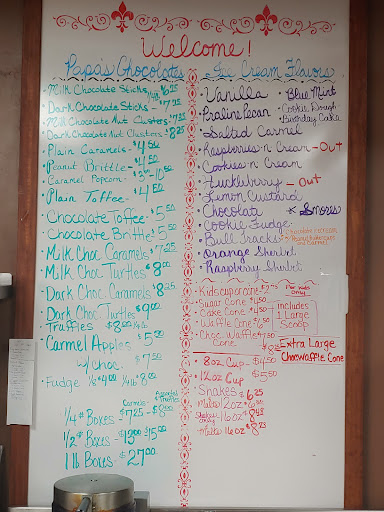 Welcome!
Papa's Chocolates
• Milk Chocolate Sticks 1/4lb $6.25
Dark Chocolate Sticks - $7.75
Milk Chocolate Nut Clusters $7.25
• Dark Chocolate Nut Clusters $8.25
• Plain Caramels $4.50
• Peanut Brittle $4.50
• Caramel Popcorn -
• Plain Toffee - $4.50
• Chocolate Toffee - $5.50
• Chocolate Brittle $5.50
• Milk Choc Caramels $7.25
• Milk Choc Turtles $8.00
• Dark Choc. Caramels $8.25
• Dark Choc. Turtle $9.00
Truffles $8.00 1/4 lb.
• Carmel Apples $5.50
w/choc. $7.50
• Fudge 1/2 lb $4.00 1 lb $8.00
Carmels Assorted & Truffles
1/4# Boxes - $7.25 - $8.00
1/2# Boxes - $13.00 $15.00
1 lb Boxes - $27.00
Ice Cream Flavors
• Vanilla • Blue Mint
• Praline Pecan • Cookie Dough
• Birthday Cake
• Salted Carmel
• Raspberries n Cream - Out
• Cookies n Cream
• Huckleberry - Out
• Lemon Custard
• Chocolate * S'mores
• Cookie Fudge
• Bull Tracks
• Orange Sherbet
• Raspberry Sherbet
• Kids cup or cone $2.75
• Sugar Cone $4.50
• Cake Cone $4.50
• Waffle Cone $6.50
Includes 1 Large Scoop
• Choc. Waffle $7.50
Cone
Extra Large Choc Waffle Cone
• 8oz Cup - $4.50
• 12oz Cup $5.50
• Shakes $6.25
Malts 12oz
Shakes Only 16oz
• Malts 16oz $8.25